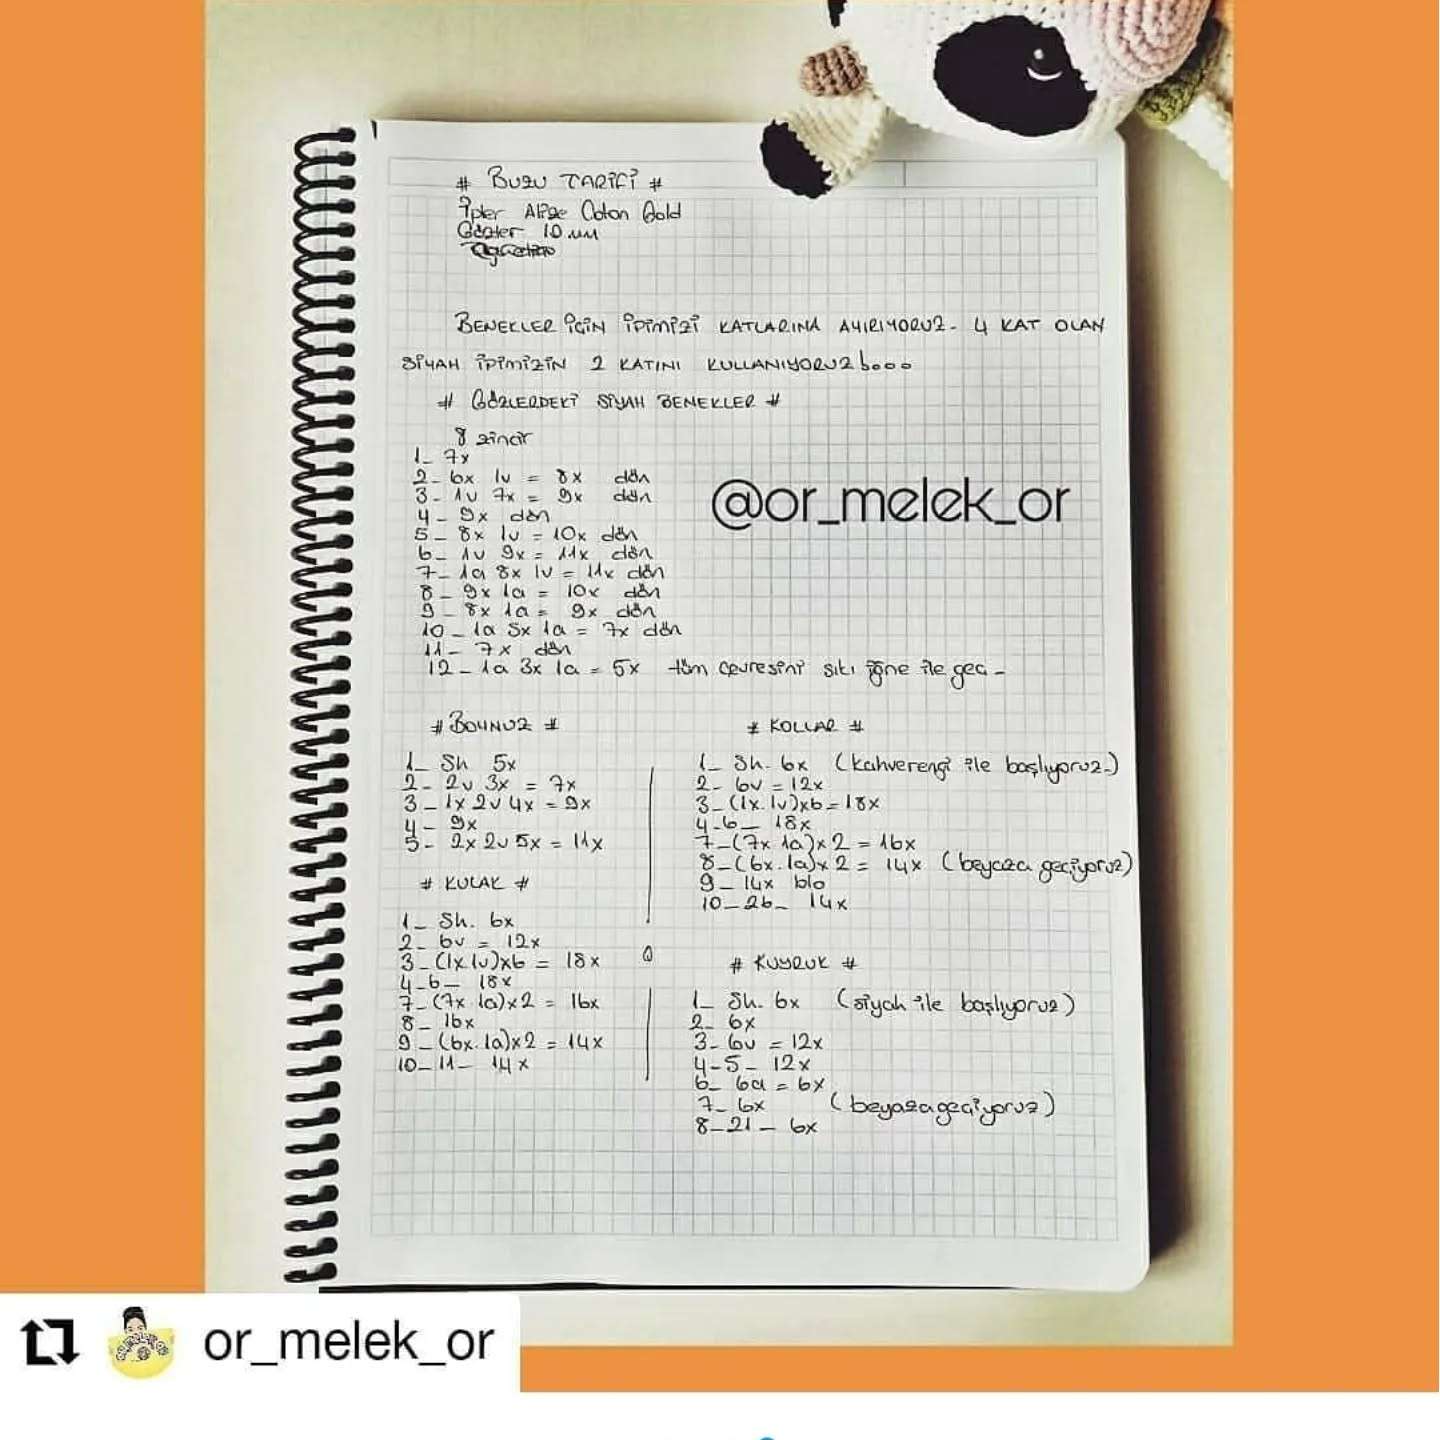 # BUZU TARİFİ #
İpler Alize Coton Gold
Gözler 10 mm
BENEKLER İÇİN İPİMİZİ KATLARINA AYIRIYORUZ. 4 KAT OLAN
SİYAH İPİMİZİN 2 KATINI KULLANIYORUZ
# GÖZLERDEKİ SİYAH BENEKLER #
8 zincir
1_ 7x
2_ 6x 1v = 8x dön
3_ 1v 7x = 9x dön
4_ 9x dön
5_ 8x 1v = 10x dön
6_ 1v 9x = 11x dön
7_ 1a 8x 1v = 11x dön
8_ 9x 1a = 10x dön
9_ 8x 1a = 9x dön
10_ 1a 5x 1a = 7x dön
11_ 7x dön
12_ 1a 3x 1a = 5x tüm çevresini sık iğne ile geç_
@or_melek_or
# BOYNUZ #
1_ Sh 5x
2_ 2v 3x = 7x
3_ 1x 2v 4x = 9x
4_ 9x
5_ 2x 2v 5x = 11x
# KULAK #
1_ Sh. 6x
2_ 6v = 12x
3_ (1x 1v)x6 = 18x
4_6_ 18x
7_ (7x 1a)x2 = 16x
8_ 16x
9_ (6x.1a)x2 = 14x
10_11_ 14x
# KOLLAR #
1_ Sh. 6x (kahverengi ile başlıyoruz.)
2_ 6v = 12x
3_ (1x.1v)x6 = 18x
4_6_ 18x
7_ (7x 1a)x2 = 16x
8_ (6x.1a)x2 = 14x (beyaza geçiyoruz)
9_ 14x blo
10_26_ 14x
# KUYRUK #
1_ Sh. 6x (siyah ile başlıyoruz)
2_ 6x
3_ 6v = 12x
4-5_ 12x
6_ 6a = 6x
7_ 6x (beyaza geçiyoruz)
8_21_ 6x
or_melek_or